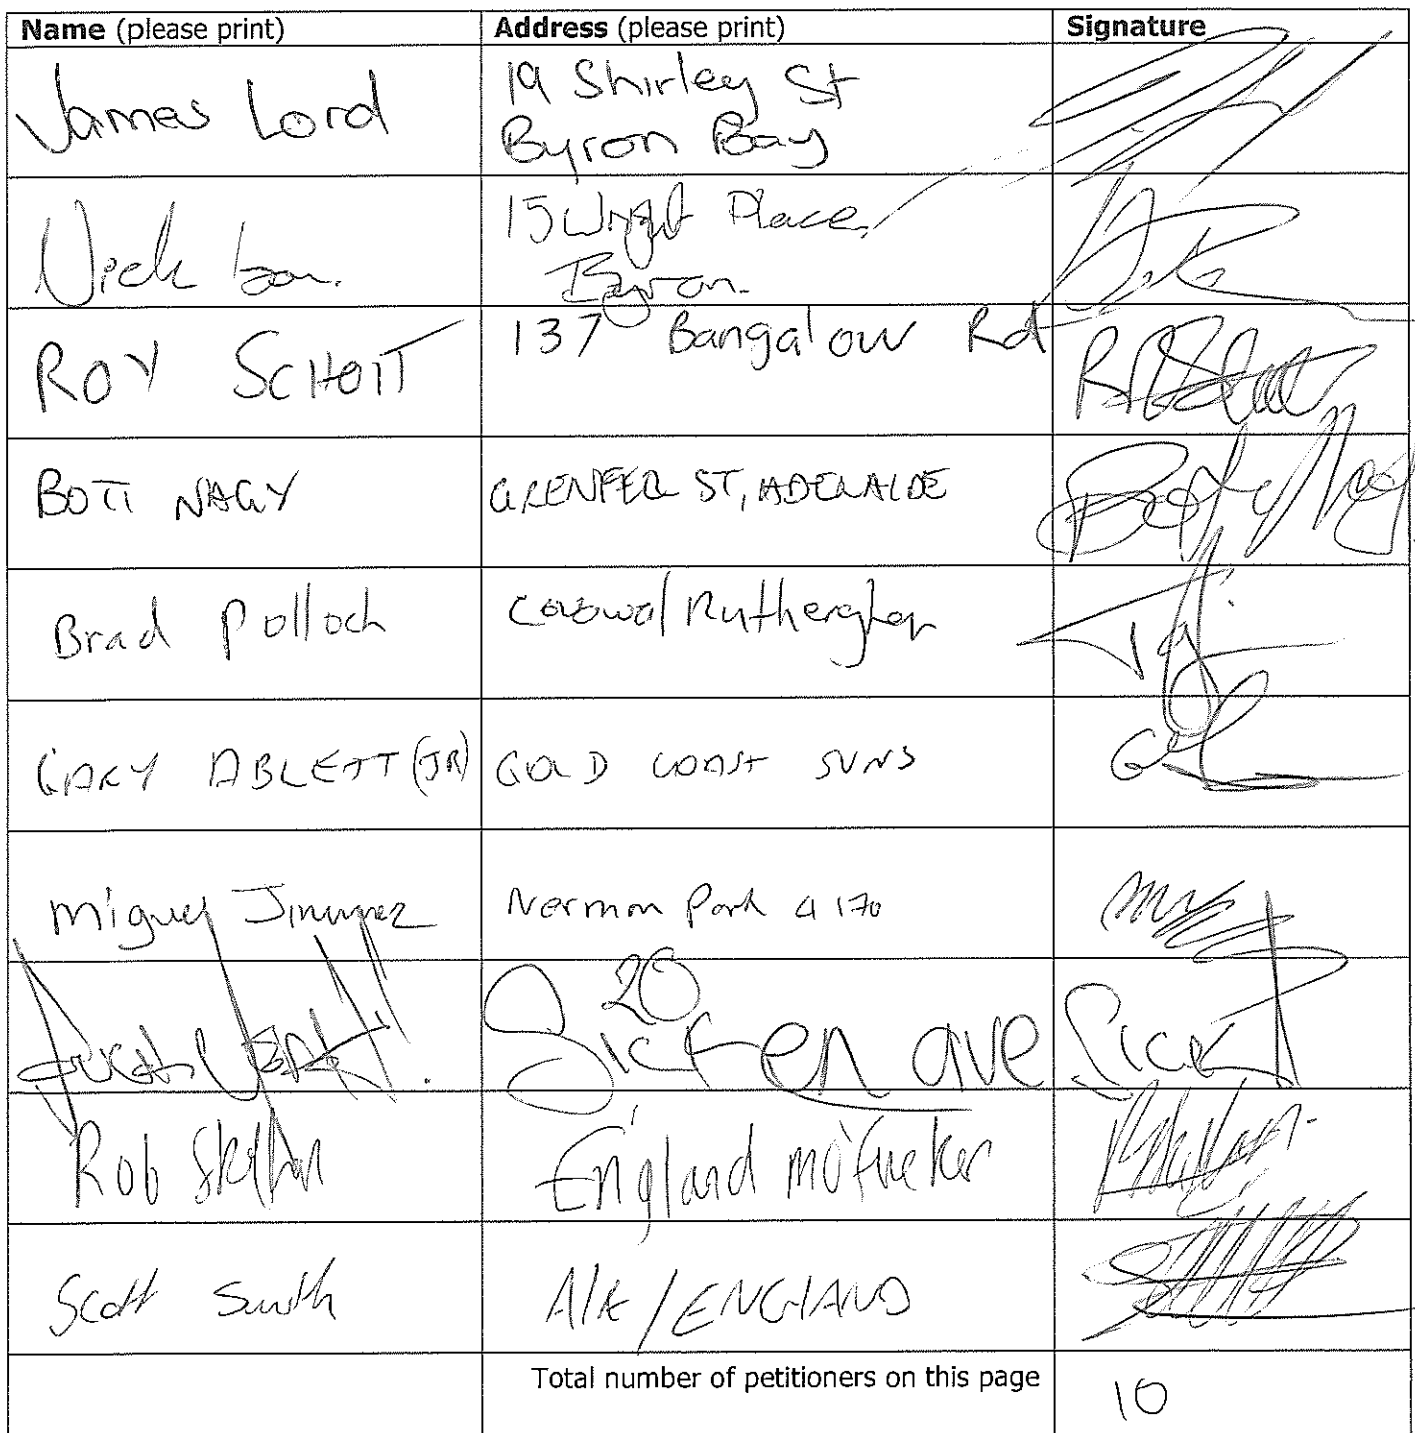 Name (please print) Address (please print) Signature
James Lord 19 Shirley St
Byron Bay
Nick 15 Wright Place,
Byron.
ROY SCHOTT 137 Bangalow Rd
BOTI NAGY GRENFELL ST, ADELAIDE
Brad Pollock
GARY ABLETT (JR) GOLD COAST SUNS
Miguel Jimenez Norman Park 4170
20
Sicken ave Sick
Rob England mofucker
Scott Smith /ENGLAND
Total number of petitioners on this page 10